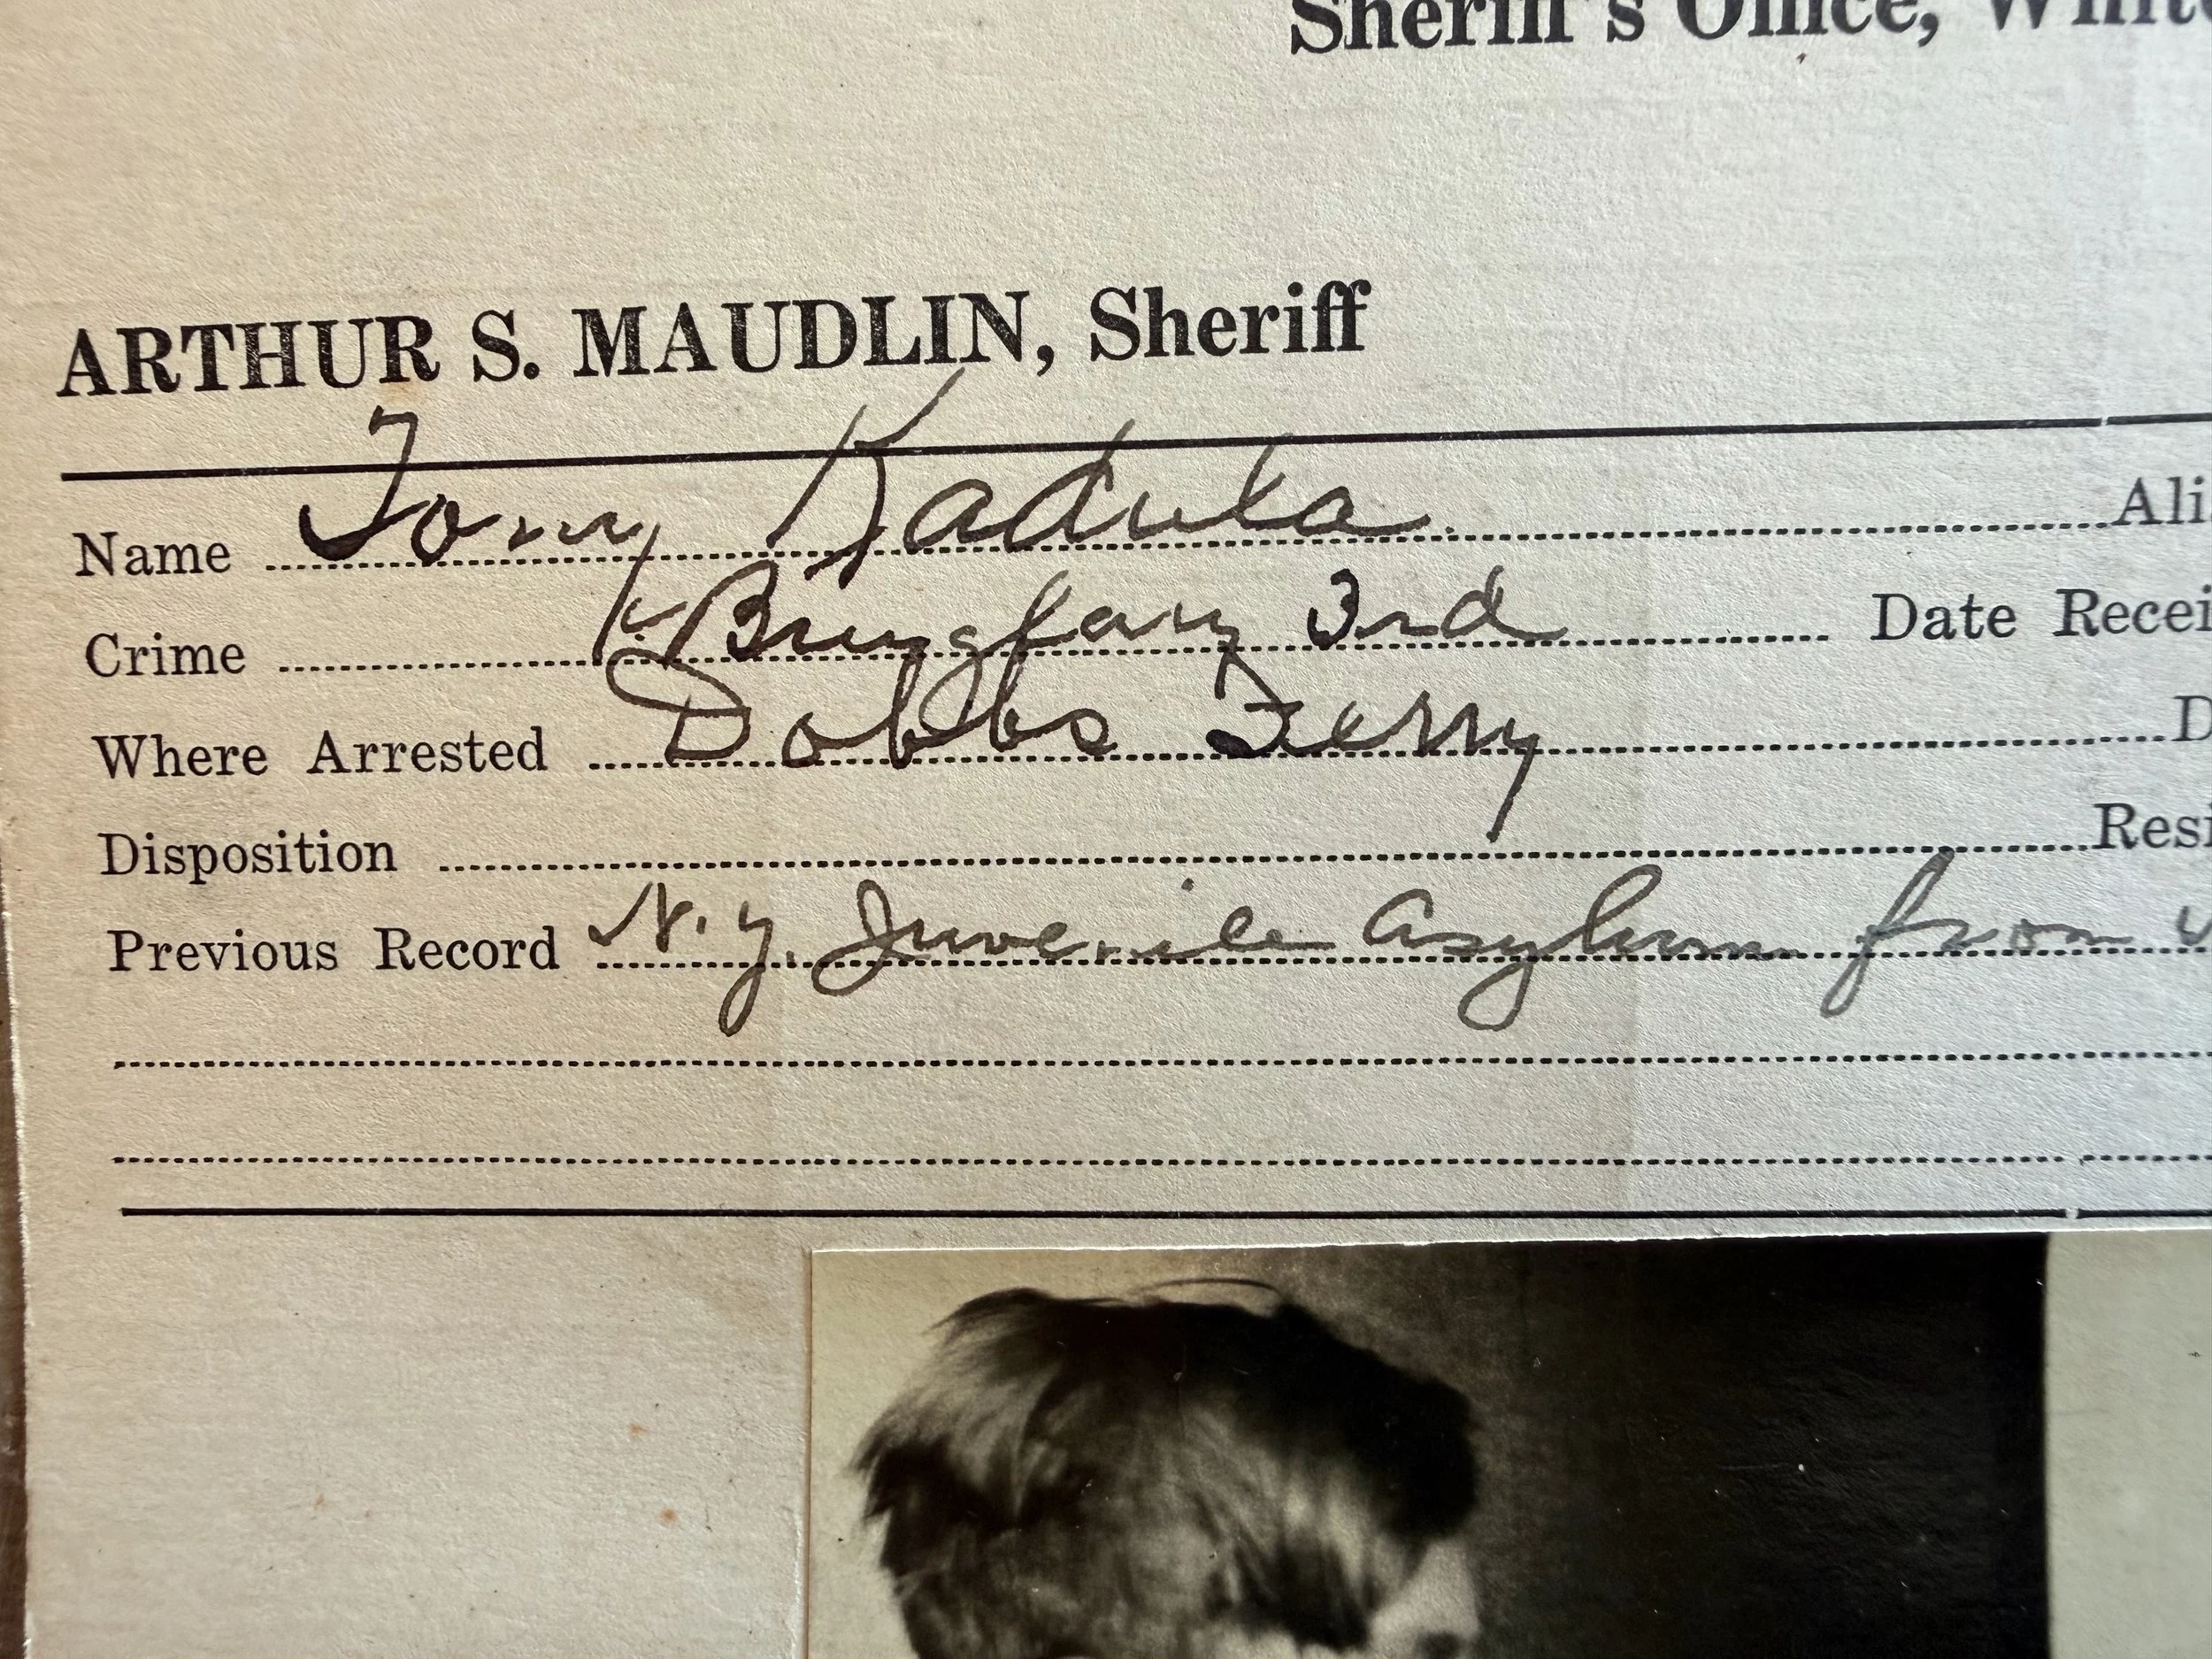 Sheriff's Office, White
ARTHUR S. MAUDLIN, Sheriff
Name Tony Kadula Ali
Crime Burglary 3rd Date Recei
Where Arrested Dobbs Ferry D
Disposition Resi
Previous Record N.Y. Juvenile Asylum from